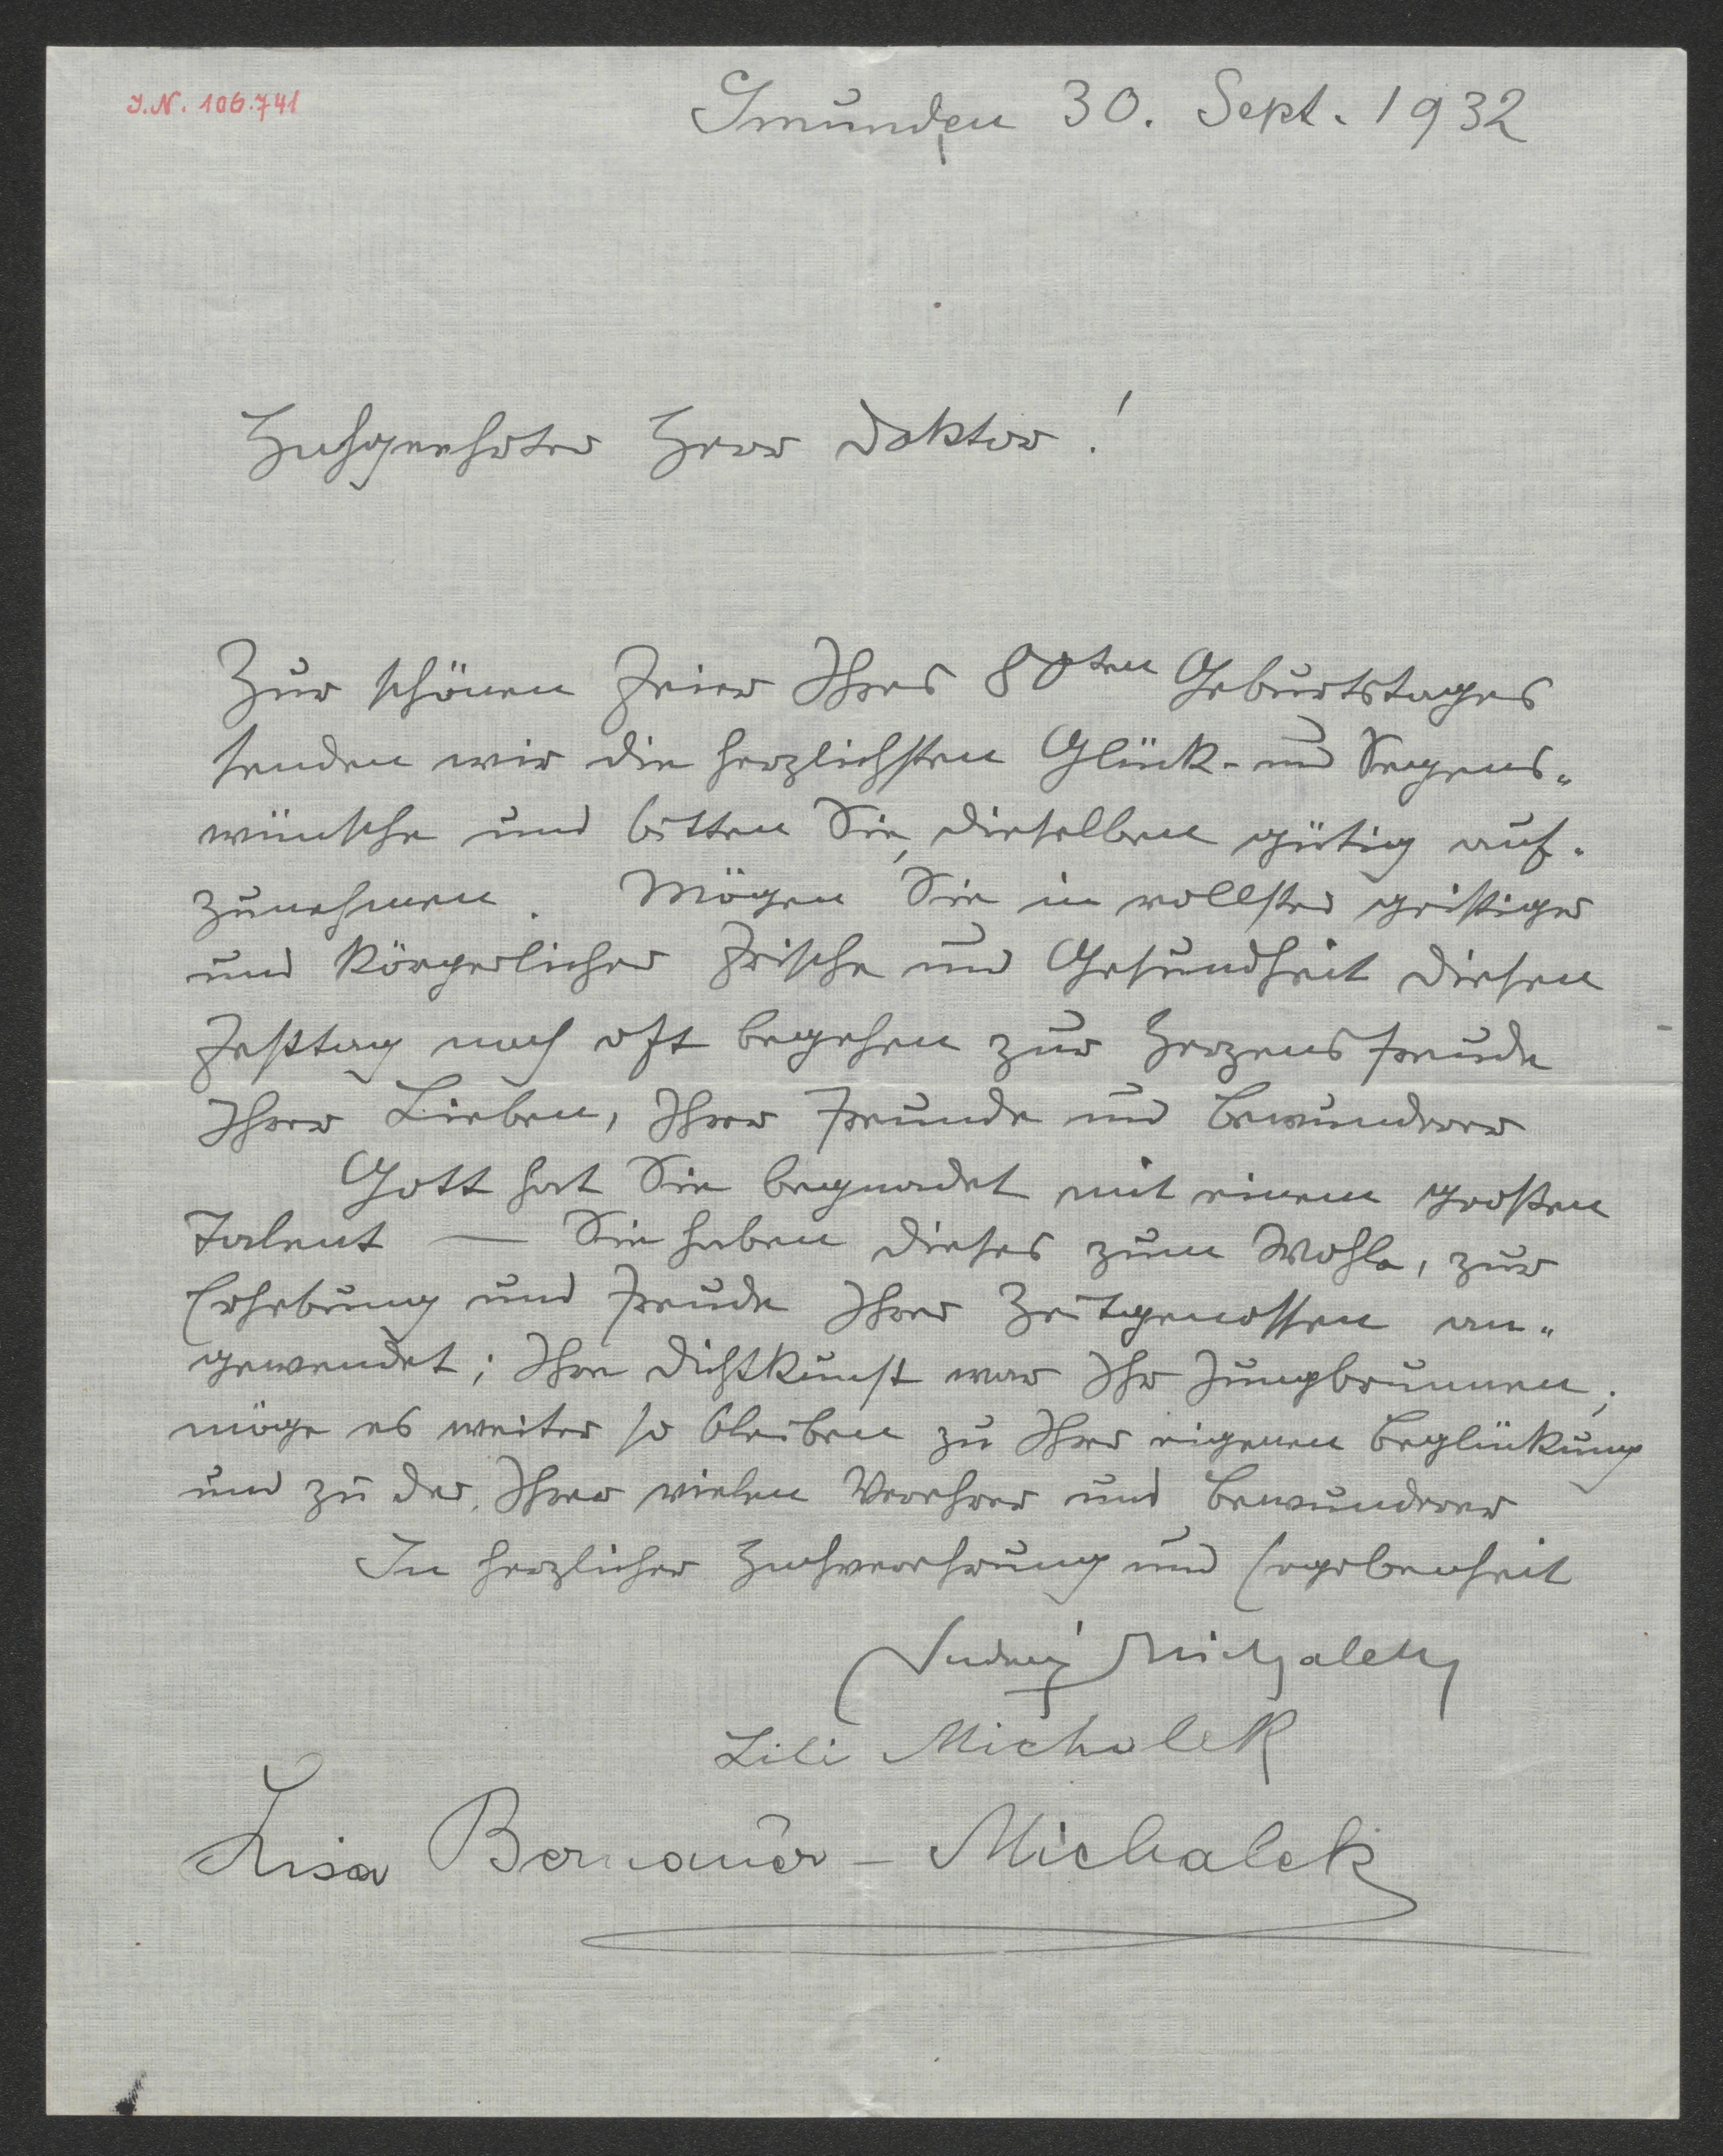 J.N. 106.741
Gmunden 30. Sept. 1932
Hochgeehrter Herr Doktor!
Zur schönen Feier Ihres 80ten Geburtstages
senden wir die herzlichsten Glück- und Segens-
wünsche und bitten Sie, dieselben gütig auf-
zunehmen. Mögen Sie in vollster geistiger
und körperlicher Frische und Gesundheit diesen
Festtag noch oft begehen zur Herzensfreude
Ihrer Lieben, Ihrer Freunde und Bewunderer
Gott hat Sie begnadet mit einem großen
Talent — Sie haben dieses zum Wohle, zur
Erhebung und Freude Ihrer Zeitgenossen an-
gewendet; Ihre Dichtkunst war Ihr Jungbrunnen;
möge es weiter so bleiben zu Ihrer eigenen Beglückung
und zu der Ihrer vielen Verehrer und Bewunderer
In herzlicher Hochverehrung und Ergebenheit
Ludwig Michalek
Lili Michalek
Lisa Bernauer - Michalek